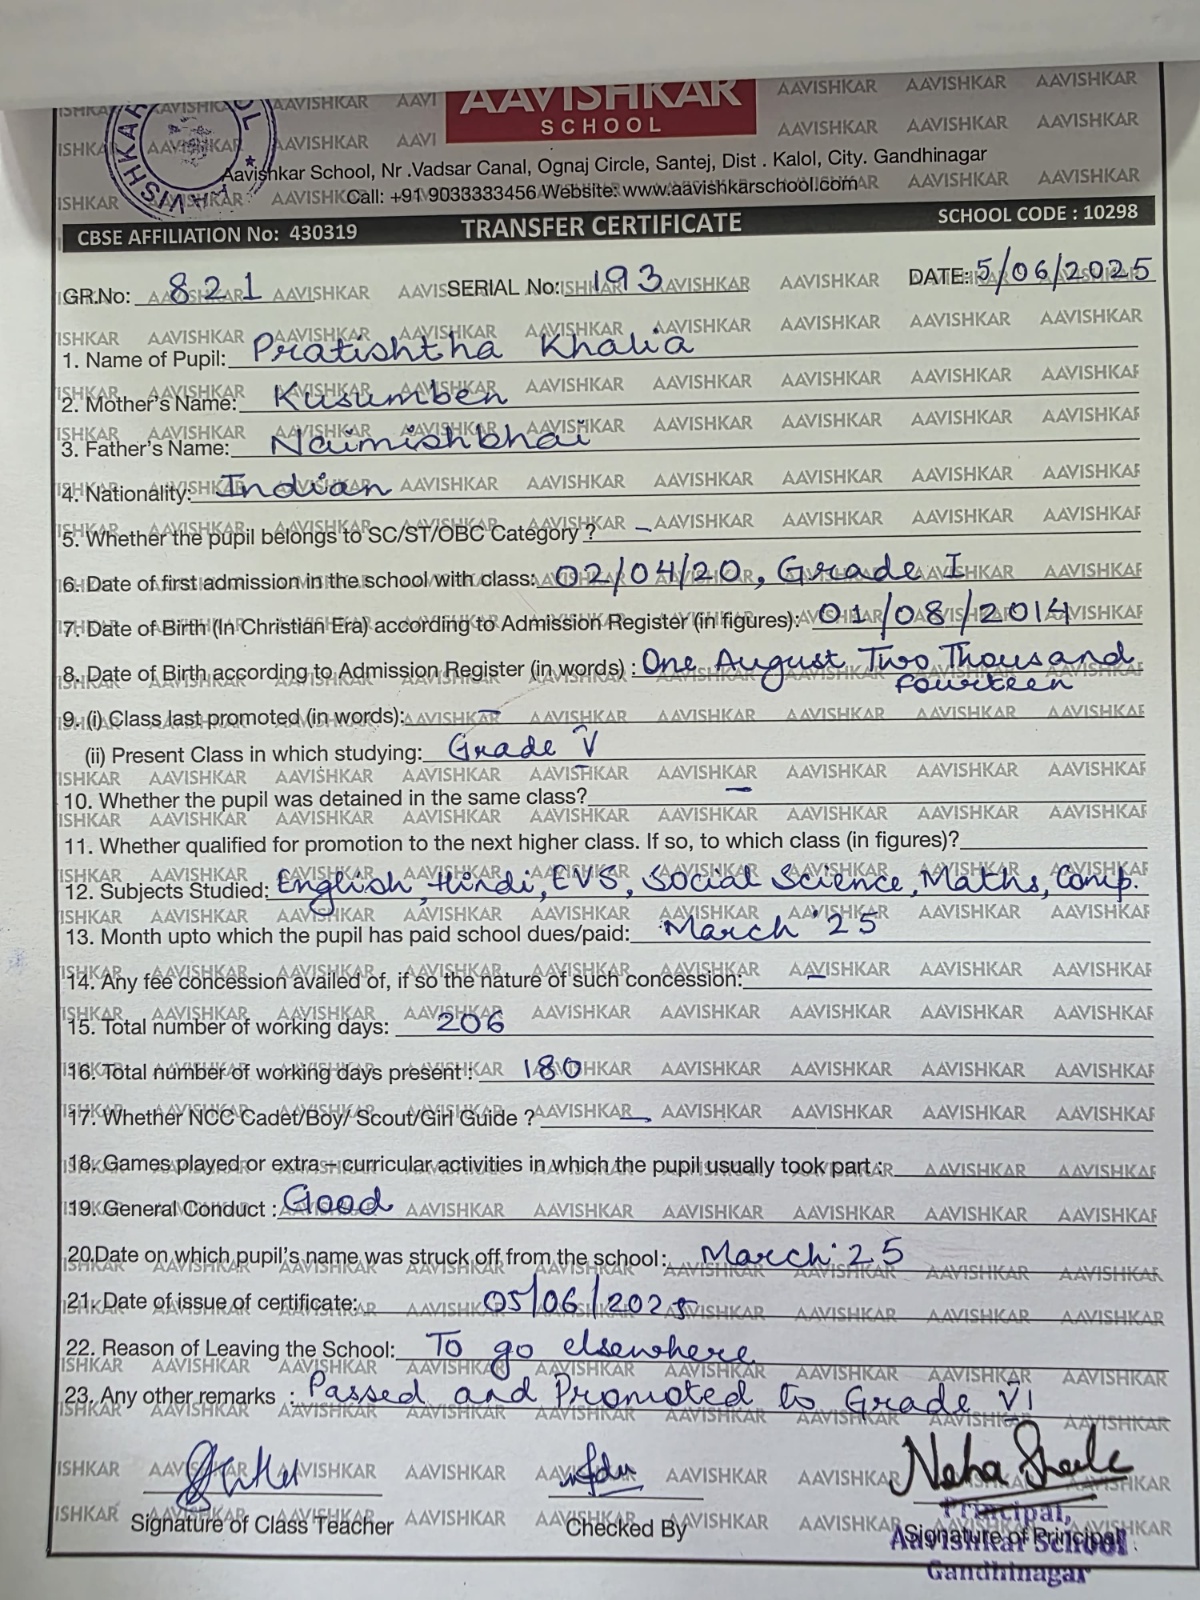 AAVISHKAR
SCHOOL
Aavishkar School, Nr .Vadsar Canal, Ognaj Circle, Santej, Dist . Kalol, City. Gandhinagar
Call: +91 9033333456 Website: www.aavishkarschool.com
CBSE AFFILIATION No: 430319 TRANSFER CERTIFICATE SCHOOL CODE : 10298
GR.No: 821 SERIAL No: 193 DATE: 5/06/2025
1. Name of Pupil: Pratishtha Khalia
2. Mother's Name: Kusumben
3. Father's Name: Naimishbhai
4. Nationality: Indian
5. Whether the pupil belongs to SC/ST/OBC Category ? –
6. Date of first admission in the school with class: 02/04/20, Grade I
7. Date of Birth (In Christian Era) according to Admission Register (in figures): 01/08/2014
8. Date of Birth according to Admission Register (in words) : One August Two Thousand
fourteen
9. (i) Class last promoted (in words): –
(ii) Present Class in which studying: Grade V
10. Whether the pupil was detained in the same class? –
11. Whether qualified for promotion to the next higher class. If so, to which class (in figures)?
12. Subjects Studied: English, Hindi, EVS, Social Science, Maths, Comp.
13. Month upto which the pupil has paid school dues/paid: March '25
14. Any fee concession availed of, if so the nature of such concession: –
15. Total number of working days: 206
16. Total number of working days present : 180
17. Whether NCC Cadet/Boy/ Scout/Girl Guide ? –
18. Games played or extra – curricular activities in which the pupil usually took part :
19. General Conduct : Good
20.Date on which pupil's name was struck off from the school: March '25
21. Date of issue of certificate: 05/06/2025
22. Reason of Leaving the School: To go elsewhere
23. Any other remarks : Passed and Promoted to Grade VI
Neha
Signature of Class Teacher Checked By Signature of Principal
Principal,
Aavishkar School
Gandhinagar